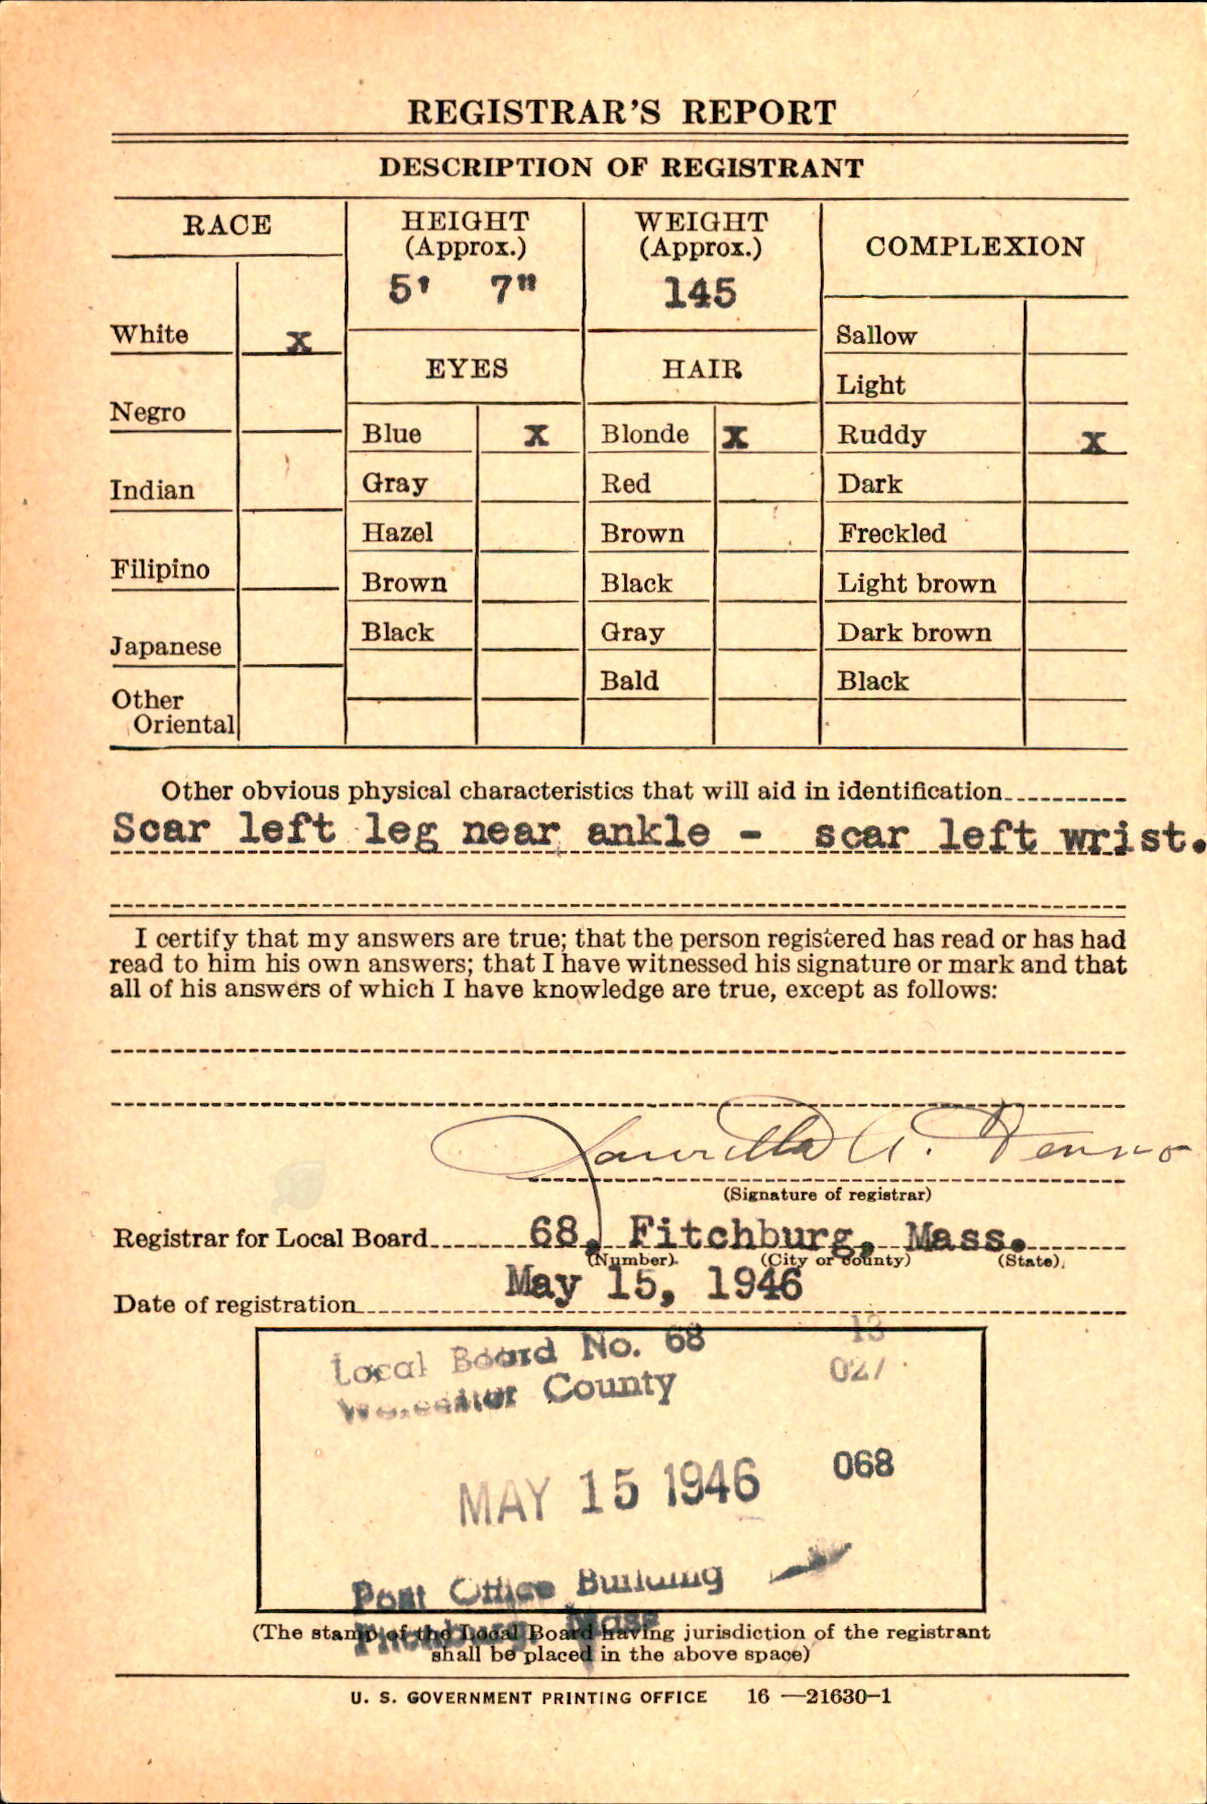 REGISTRAR'S REPORT
DESCRIPTION OF REGISTRANT
RACE
HEIGHT
(Approx.)
5' 7"
WEIGHT
(Approx.)
145
COMPLEXION
White X
Negro
Indian
Filipino
Japanese
Other
Oriental
EYES
Blue X
Gray
Hazel
Brown
Black
HAIR
Blonde X
Red
Brown
Black
Gray
Bald
Sallow
Light
Ruddy X
Dark
Freckled
Light brown
Dark brown
Black
Other obvious physical characteristics that will aid in identification
Scar left leg near ankle - scar left wrist.
I certify that my answers are true; that the person registered has read or has had
read to him his own answers; that I have witnessed his signature or mark and that
all of his answers of which I have knowledge are true, except as follows:
A.
(Signature of registrar)
Registrar for Local Board 68, Fitchburg, Mass.
(Number) (City or county) (State)
Date of registration May 15, 1946
Local Board No. 68 13
Worcester County 027
068
MAY 15 1946
Post Office Building
Fitchburg, Mass
(The stamp of the Local Board having jurisdiction of the registrant
shall be placed in the above space)
U. S. GOVERNMENT PRINTING OFFICE 16—21630-1